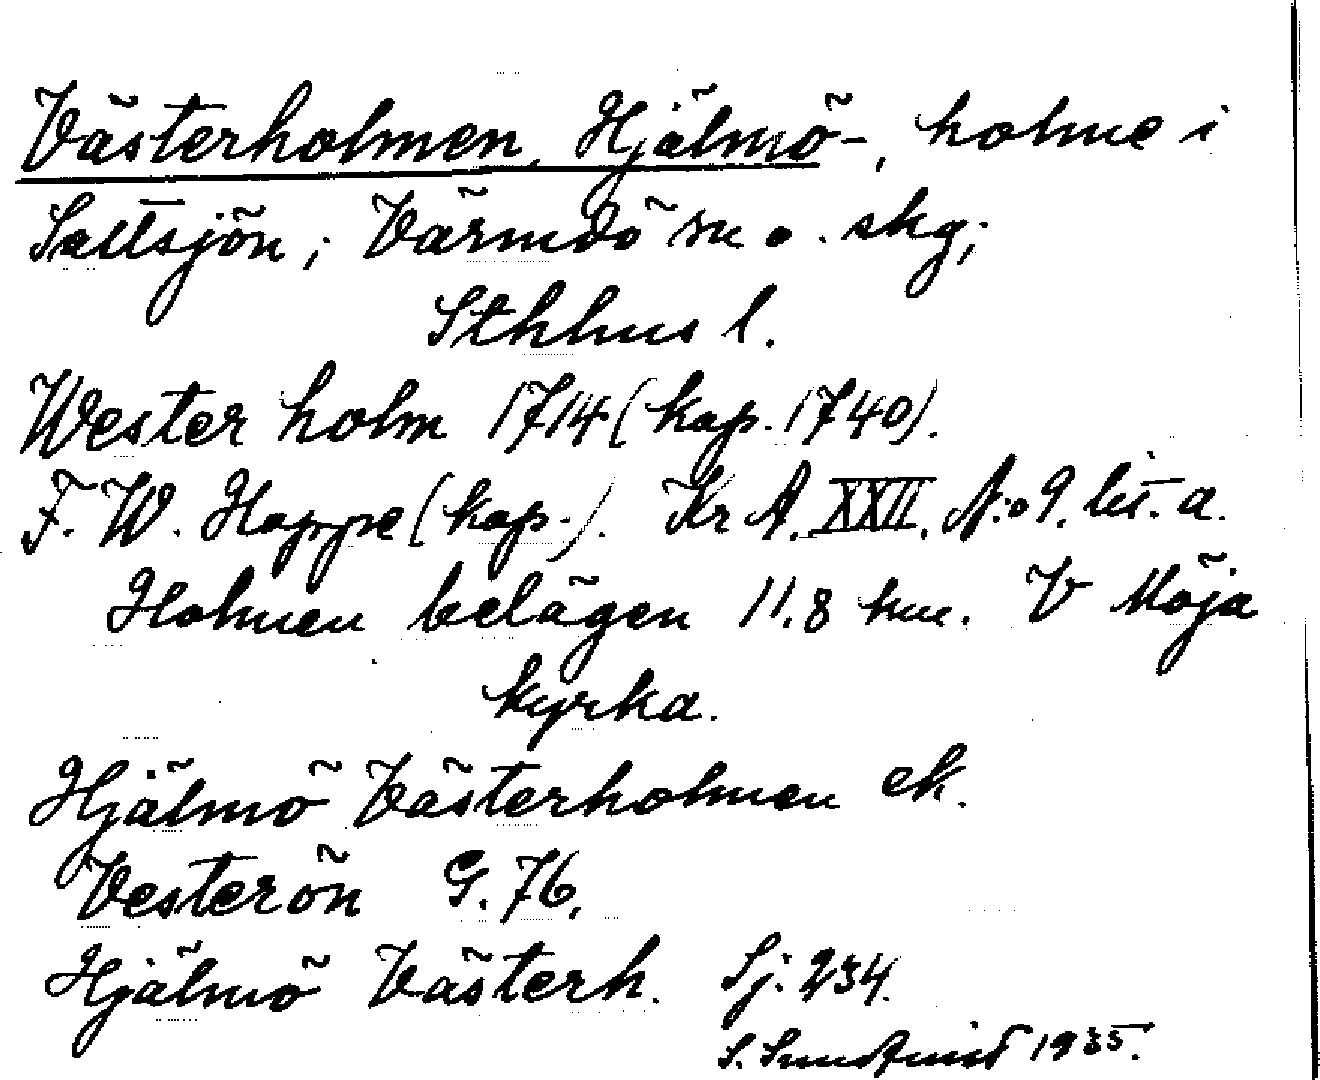 Västerholmen, Hjälmö-, holme i
Saltsjön; Värmdö sn o. skg;
Sthlms l.
Wester holm 1714 (kop. 1740).
F. W. Hoppe (kop.). Kr A. XXII. N:o 9. lit. a.
Holmen belägen 11.8 km. V Möja
kyrka.
Hjälmö Västerholmen ek.
Vesterön G. 76.
Hjälmö Västerh. Sj. 234.
S. 1935.